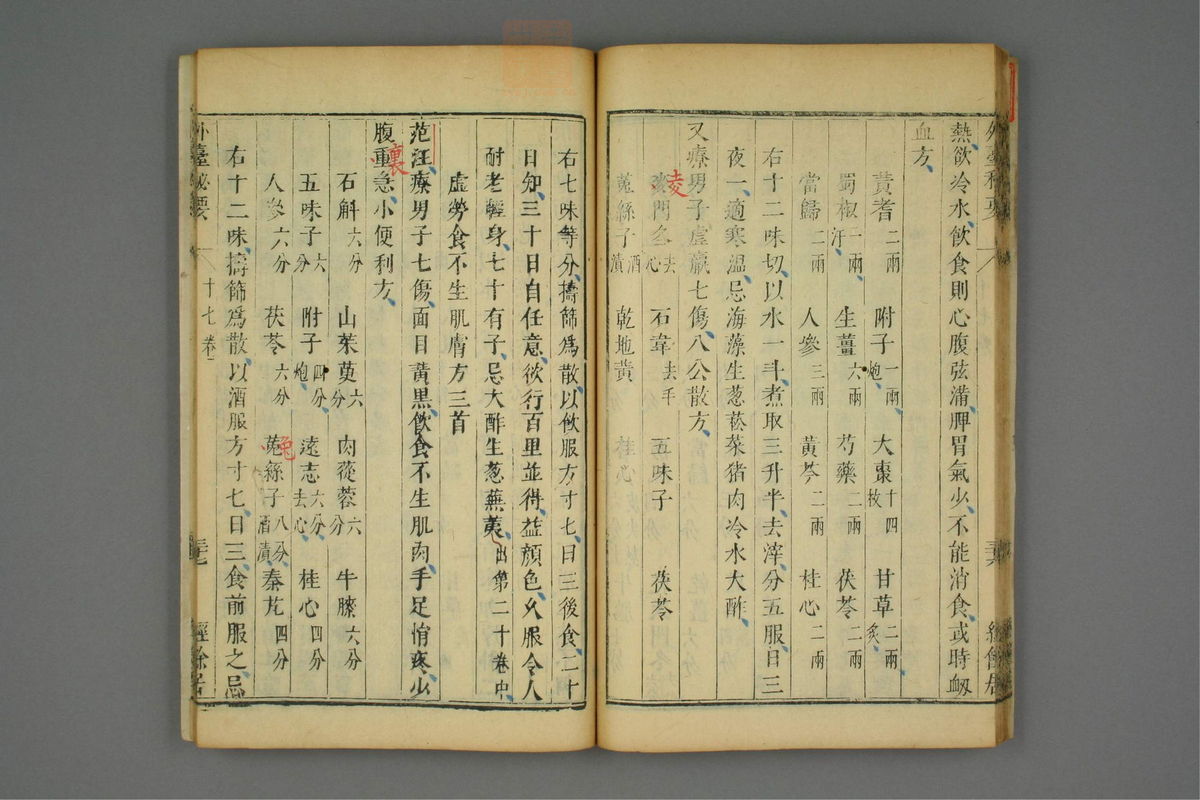 外臺秘要
経餘居
熱欲冷水飲食則心腹弦滿脾胃氣少不能消食或時衂
血方
黃耆二兩 附子一兩炮 大棗十四枚 甘草二兩炙
蜀椒二兩汗 生薑六兩 芍藥二兩 茯苓二兩
當歸二兩 人參三兩 黃芩二兩 桂心二兩
右十二味切以水一斗煮取三升半去滓分五服日三
夜一適寒溫忌海藻生葱菘菜猪肉冷水大酢
又療男子虛羸七傷八公散方
麥門冬去心 石韋去毛 五味子 茯苓
凌
菟絲子酒漬 乾地黃 桂心
右七味等分擣篩為散以飲服方寸七日三後食二十
日知三十日自任意欲行百里並得益顏色久服令人
耐老輕身七十有子忌大酢生葱蕪荑出第二十卷中
虛勞食不生肌膚方三首
范汪療男子七傷面目黃黒飲食不生肌肉手足惰疼少
腹重急小便利方
裏
石斛六分 山茱萸六分 肉蓯蓉六分 牛膝六分
五味子六分 附子四分炮 遠志六分去心 桂心四分
人參六分 茯苓六分 菟絲子八分酒漬 秦艽四分
兔
右十二味擣篩為散以酒服方寸七日三食前服之忌
外臺秘要
十七卷
三七
經餘居